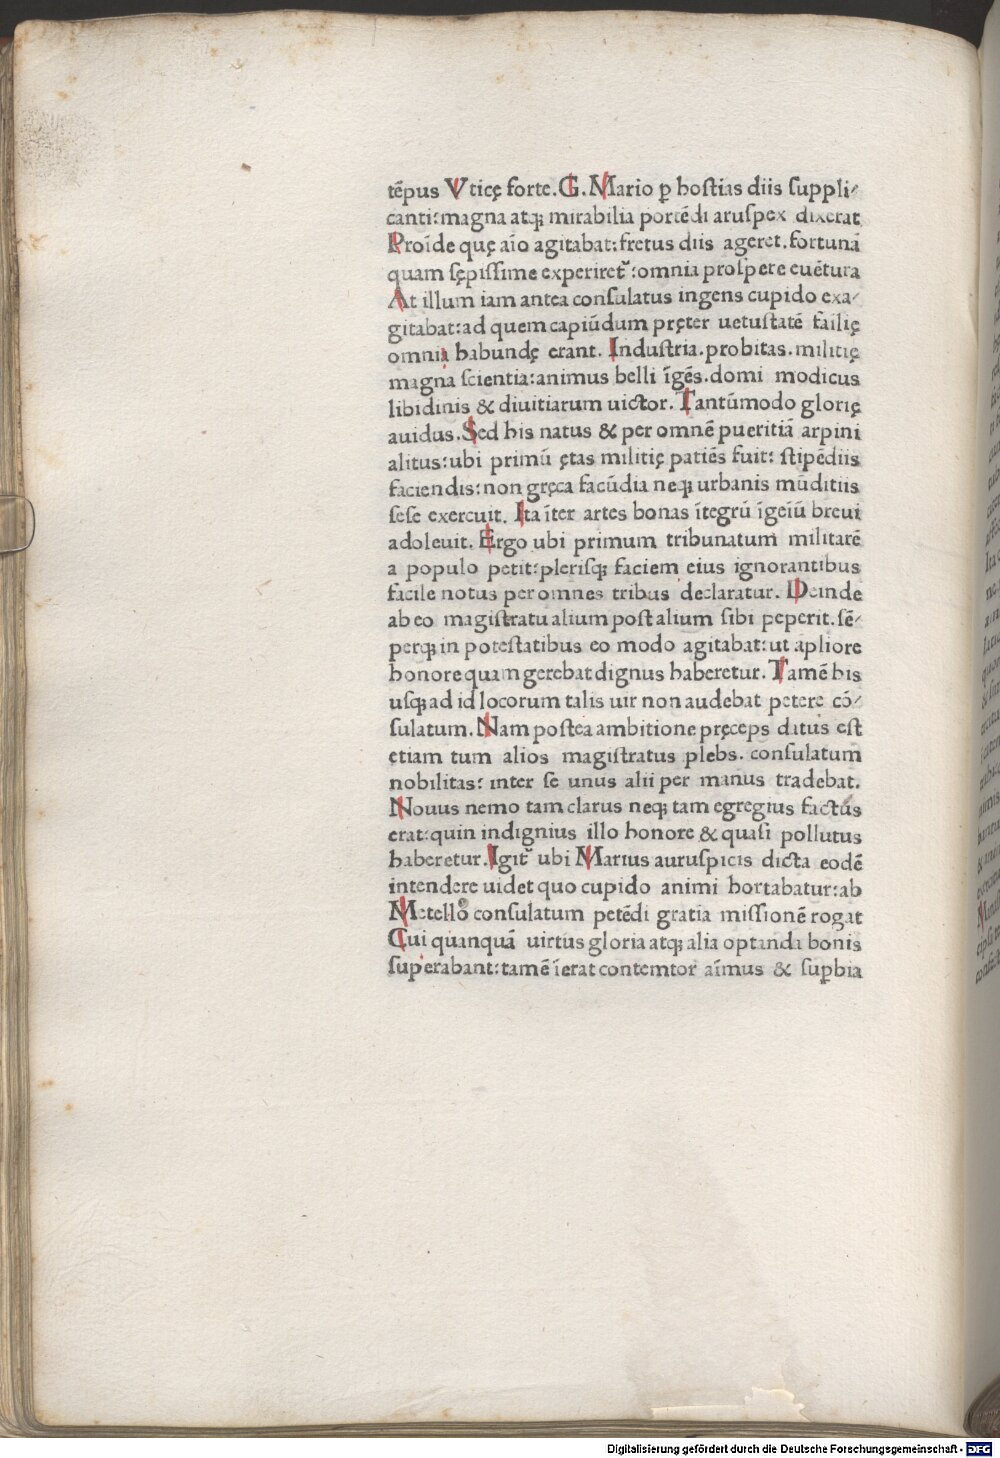 tēpus Vticę forte. G. Mario ꝑ hoſtias diis ſuppli⸗
canti:magna atqꝫ mirabilia portēdi aruſpex dixerat
Proīde quę aīo agitabat:fretus diis ageret.fortunā
quam ſępiſſime experiret᷑:omnia proſpere euētura
At illum iam antea conſulatus ingens cupido exa⸗
gitabat:ad quem capiūdum pręter uetuſtatē failię
omnia habundę erant. Induſtria.probitas.militię
magna ſcientia:animus belli īgēs.domi modicus
libidinis & diuitiarum uictor. Tantūmodo glorię
auidus. Sed his natus & per omnē pueritiā arpini
alitus:ubi primū ętas militię patiēs fuit: ſtipēdiis
faciendis:non gręca facūdia neqꝫ urbanis mūditiis
ſeſe exercuit. Ita īter artes bonas ītegrū īgeiū breui
adoleuit. Ergo ubi primum tribunatum militarē
a populo petit:pleriſqꝫ faciem eius ignorantibus
facile notus per omnes tribus declaratur. Deinde
ab eo magiſtratu alium poſt alium ſibi peperit.ſē⸗
perqꝫ in poteſtatibus eo modo agitabat:ut apliore
honore quam gerebat dignus haberetur. Tamē his
uſqꝫ ad id locorum talis uir non audebat petere cō⸗
ſulatum. Nam poſtea ambitione pręceps datus eſt
etiam tum alios magiſtratus plebs. conſulatum
nobilitas: inter ſe unus alii per manus tradebat.
Nouus nemo tam clarus neqꝫ tam egregius factus
erat:quin indignius illo honore & quaſi pollutus
haberetur. Igit᷑ ubi Marius auruſpicis dicta eodē
intendere uidet quo cupido animi hortabatur:ab
Metello conſulatum petēdi gratia miſſionē rogat
Cui quanquā uirtus gloria atqꝫ alia optanda bonis
ſuperabant:tamē īerat contemtor aīmus & ſuꝑbia
Digitalisierung gefördert durch die Deutsche Forschungsgemeinschaft - DFG